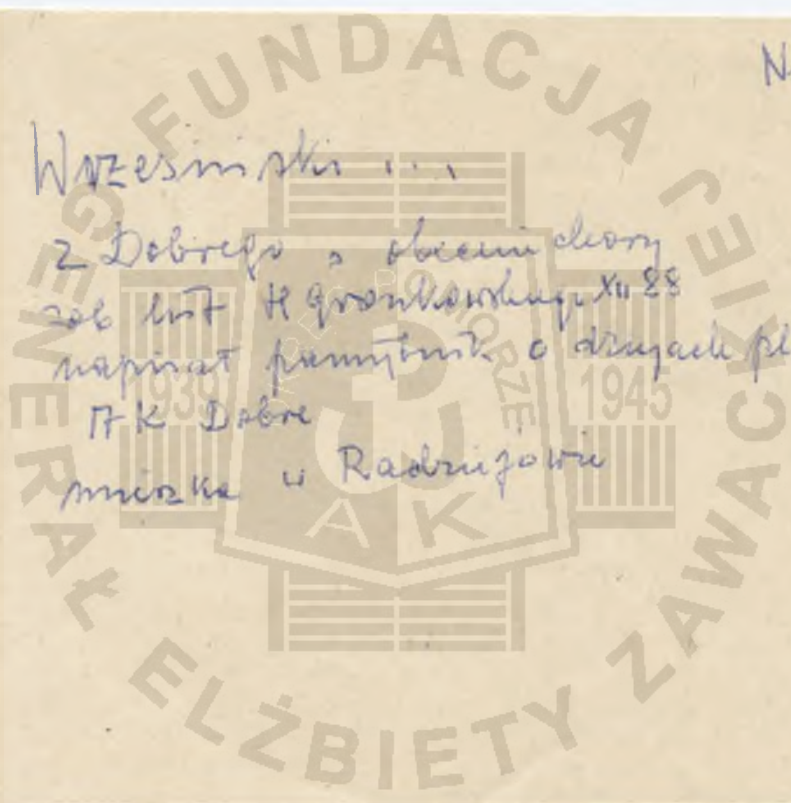 N
Wrzesiński ...
z Dobrego, obecnie chory
zob list H Gronkowskiego XII 88
napisał pamiętnik o dziejach pl
AK Dobre
mieszka w Radziejowie
FUNDACJA
GENERAŁ ELŻBIETY ZAWACKIEJ
POMORZE
1939
1945
AK